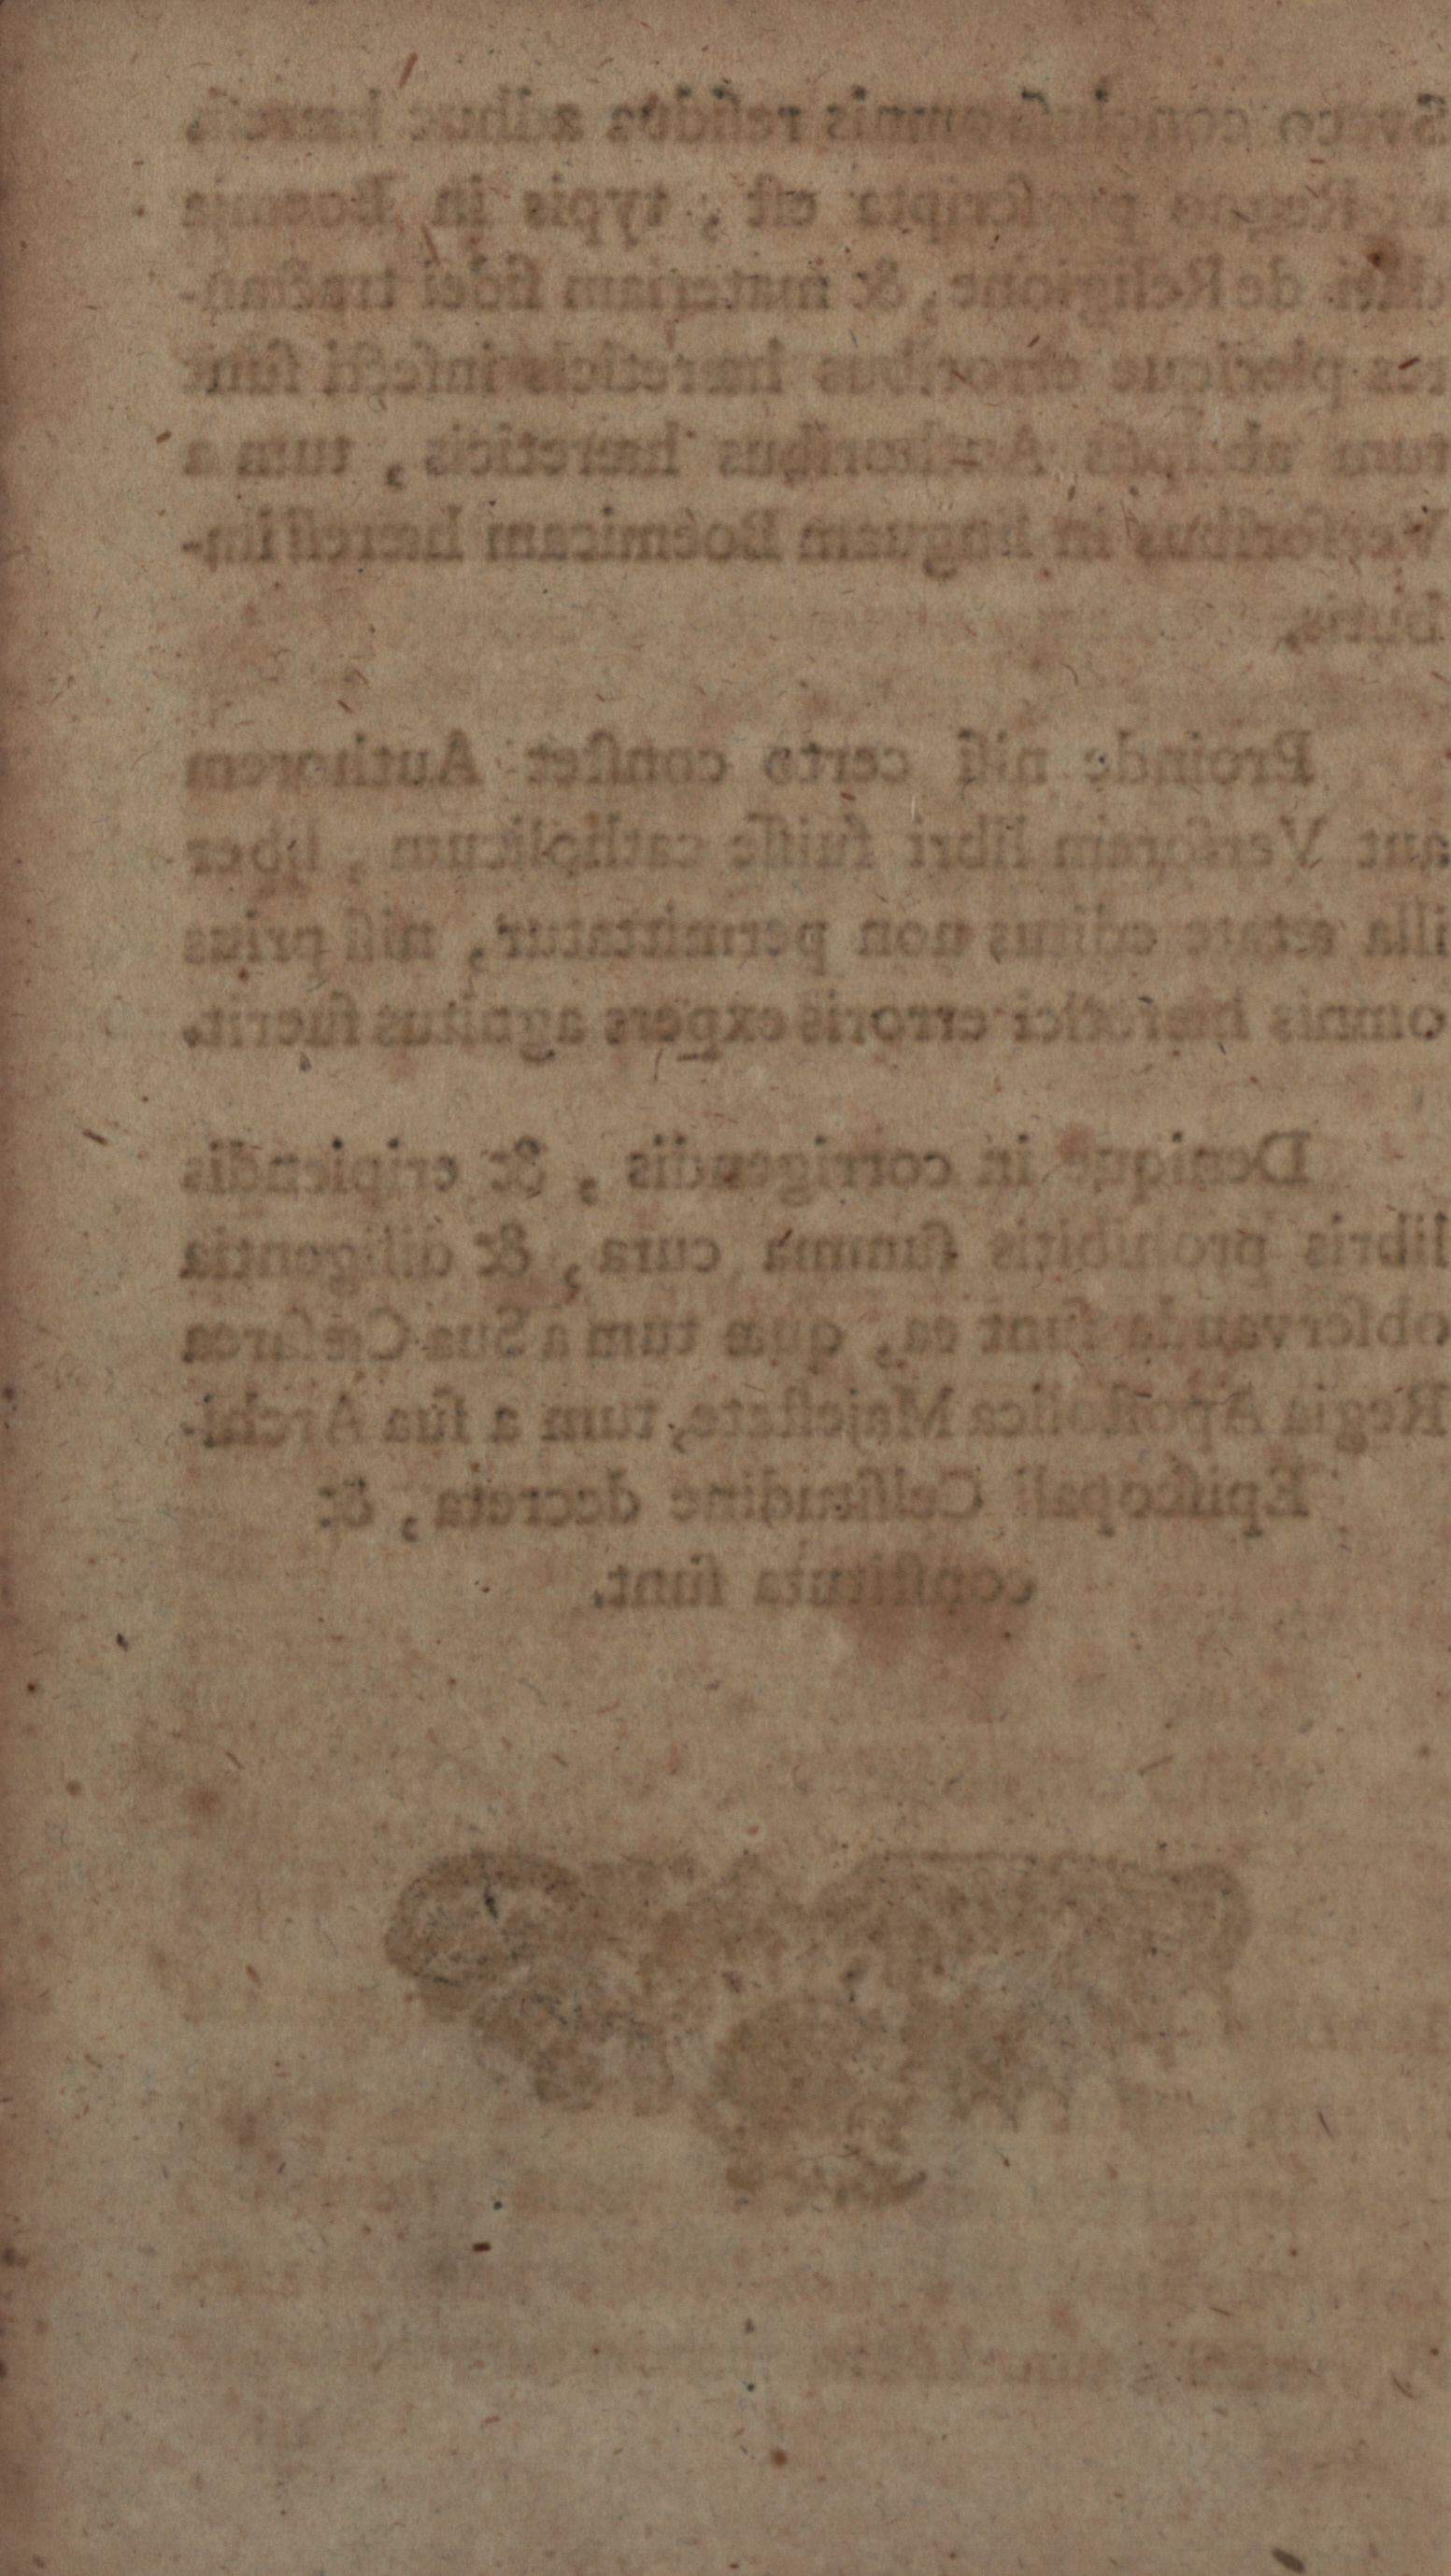 Sveco omnis adhuc hæresis
ex Regno proſcripta eſt ; typis in Boemia
de Religione, & materiam fidei tractan-
tes plerique erroribus hæreticis infecti ſunt
tum ab ipſis Authoribus hæreticis , tum a
Verſoribus in linguam Boëmicam
Proinde niſi certo conſtet Authorem
aut Verſorem libri fuiſſe catholicum , liber
illa ætate editus non permittatur, niſi prius
omnis hæretici erroris expers agnitus fuerit.
Denique in corrigendis , & eripiendis
libris prohibitis ſumma cura, & diligentia
obſervanda ſunt ea, quæ tum a Sua Cæſarea
Regia Apoſtolica Majeſtate, tum a ſua Archi-
Epiſcopali Celſitudine decreta , &
conſtituta ſunt.